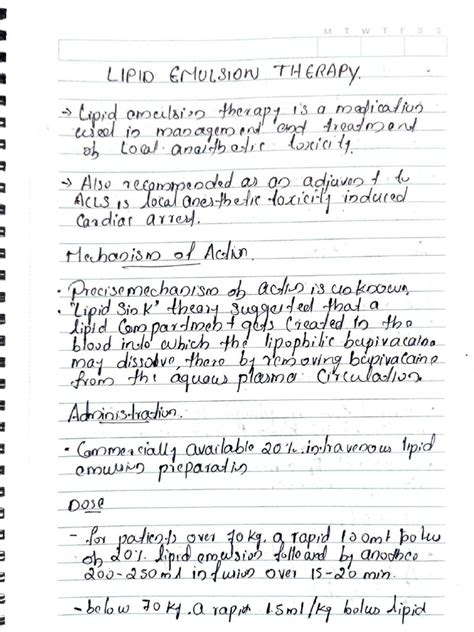 M T W T F S S
LIPID EMULSION THERAPY.
→ Lipid emulsion therapy is a medication
used in management and treatment
of Local anaesthetic toxicity.
→ Also recommended as an adjuvent to
ACLS is local anesthetic toxicity induced
Cardiac arrest.
Mechanism of Action
• Precise mechanism of action is unknown.
• "Lipid Sink" theory suggested that a
lipid Compartment gets Created in the
blood into which the lipophilic bupivacaine
may dissolve, there by removing bupivacaine
from the aqueous plasma Circulation.
Administration.
• Commercially available 20% intravenous lipid
emulsion preparation
DOSE
- for patients over 70kg. a rapid 100ml bolus
of 20% lipid emulsion followed by another
200-250ml infusion over 15-20 min.
- below 70 kg. a rapid 1.5ml/kg bolus lipid